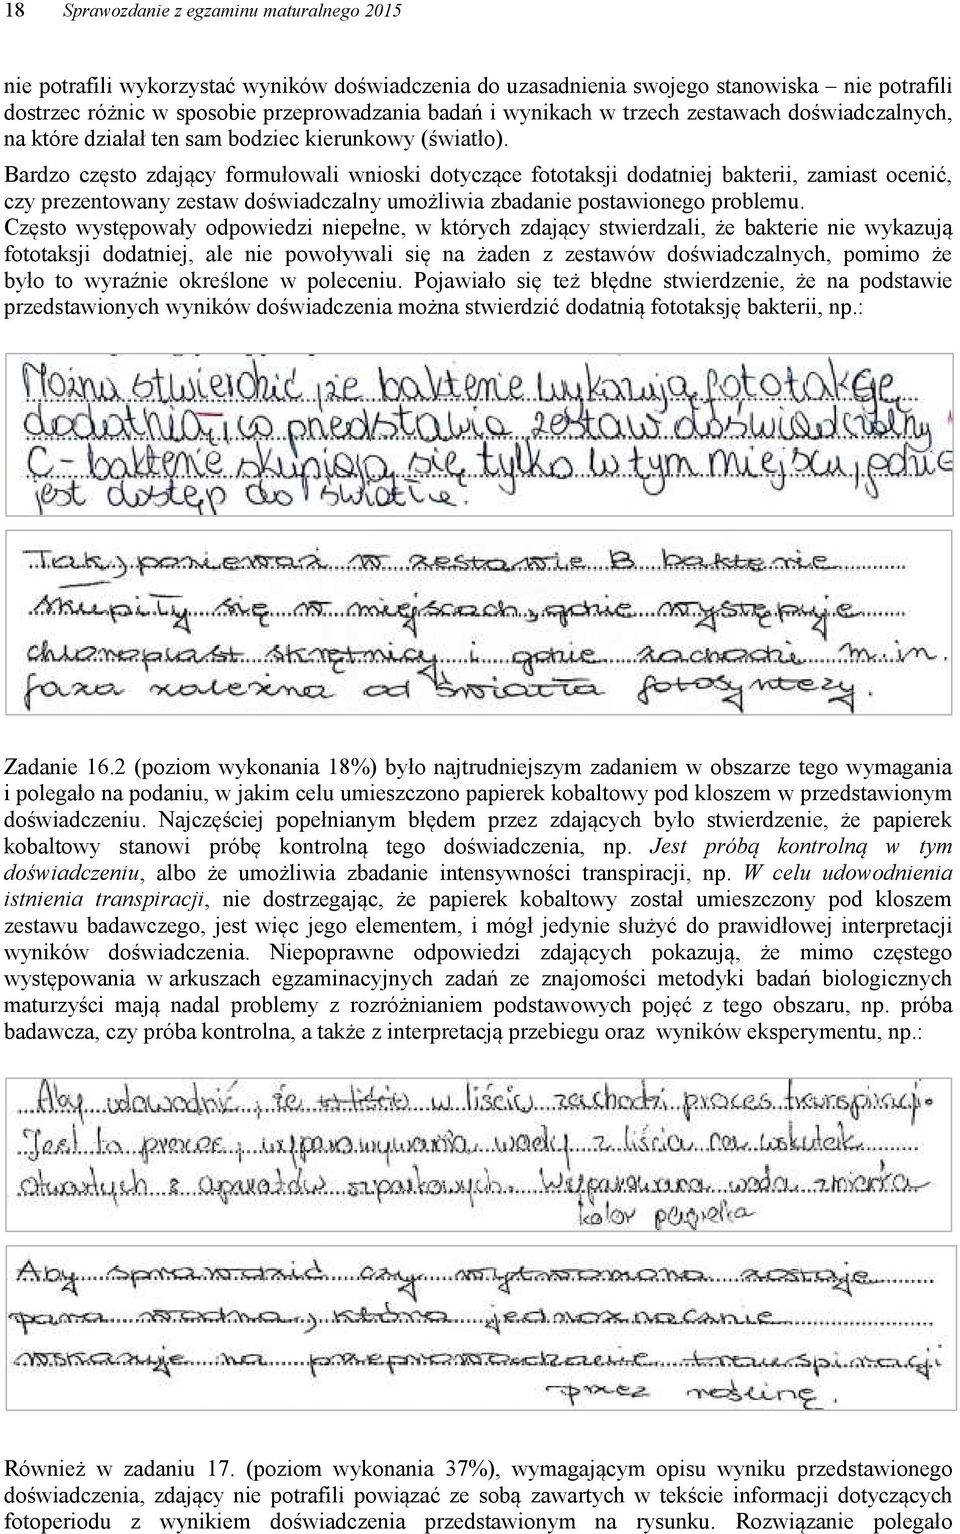 18 Sprawozdanie z egzaminu maturalnego 2015
nie potrafili wykorzystać wyników doświadczenia do uzasadnienia swojego stanowiska – nie potrafili
dostrzec różnic w sposobie przeprowadzania badań i wynikach w trzech zestawach doświadczalnych,
na które działał ten sam bodziec kierunkowy (światło).
Bardzo często zdający formułowali wnioski dotyczące fototaksji dodatniej bakterii, zamiast ocenić,
czy prezentowany zestaw doświadczalny umożliwia zbadanie postawionego problemu.
Często występowały odpowiedzi niepełne, w których zdający stwierdzali, że bakterie nie wykazują
fototaksji dodatniej, ale nie powoływali się na żaden z zestawów doświadczalnych, pomimo że
było to wyraźnie określone w poleceniu. Pojawiało się też błędne stwierdzenie, że na podstawie
przedstawionych wyników doświadczenia można stwierdzić dodatnią fototaksję bakterii, np.:
Można stwierdzić, że bakterie wykazują fototakcję
dodatnią, co przedstawia zestaw doświadczalny
C - bakterie skupiają się tylko w tym miejscu, gdzie
jest dostęp do światła.
Tak, ponieważ w zestawie B bakterie
skupiły się w miejscach, gdzie występuje
chloroplast skrętnicy i gdzie zachodzi m.in.
faza zależna od światła fotosyntezy.
Zadanie 16.2 (poziom wykonania 18%) było najtrudniejszym zadaniem w obszarze tego wymagania
i polegało na podaniu, w jakim celu umieszczono papierek kobaltowy pod kloszem w przedstawionym
doświadczeniu. Najczęściej popełnianym błędem przez zdających było stwierdzenie, że papierek
kobaltowy stanowi próbę kontrolną tego doświadczenia, np. Jest próbą kontrolną w tym
doświadczeniu, albo że umożliwia zbadanie intensywności transpiracji, np. W celu udowodnienia
istnienia transpiracji, nie dostrzegając, że papierek kobaltowy został umieszczony pod kloszem
zestawu badawczego, jest więc jego elementem, i mógł jedynie służyć do prawidłowej interpretacji
wyników doświadczenia. Niepoprawne odpowiedzi zdających pokazują, że mimo częstego
występowania w arkuszach egzaminacyjnych zadań ze znajomości metodyki badań biologicznych
maturzyści mają nadal problemy z rozróżnianiem podstawowych pojęć z tego obszaru, np. próba
badawcza, czy próba kontrolna, a także z interpretacją przebiegu oraz wyników eksperymentu, np.:
Aby udowodnić, że w liściu zachodzi proces transpiracji.
Jest to proces wyparowywania wody z liścia na wskutek
otwartych aparatów szparkowych. Wyparowana woda zmienia
kolor papierka
Aby sprawdzić czy wytworzona zostaje
para wodna, która jednoznacznie
wskazuje na przeprowadzanie transpiracji
przez roślinę.
Również w zadaniu 17. (poziom wykonania 37%), wymagającym opisu wyniku przedstawionego
doświadczenia, zdający nie potrafili powiązać ze sobą zawartych w tekście informacji dotyczących
fotoperiodu z wynikiem doświadczenia przedstawionym na rysunku. Rozwiązanie polegało